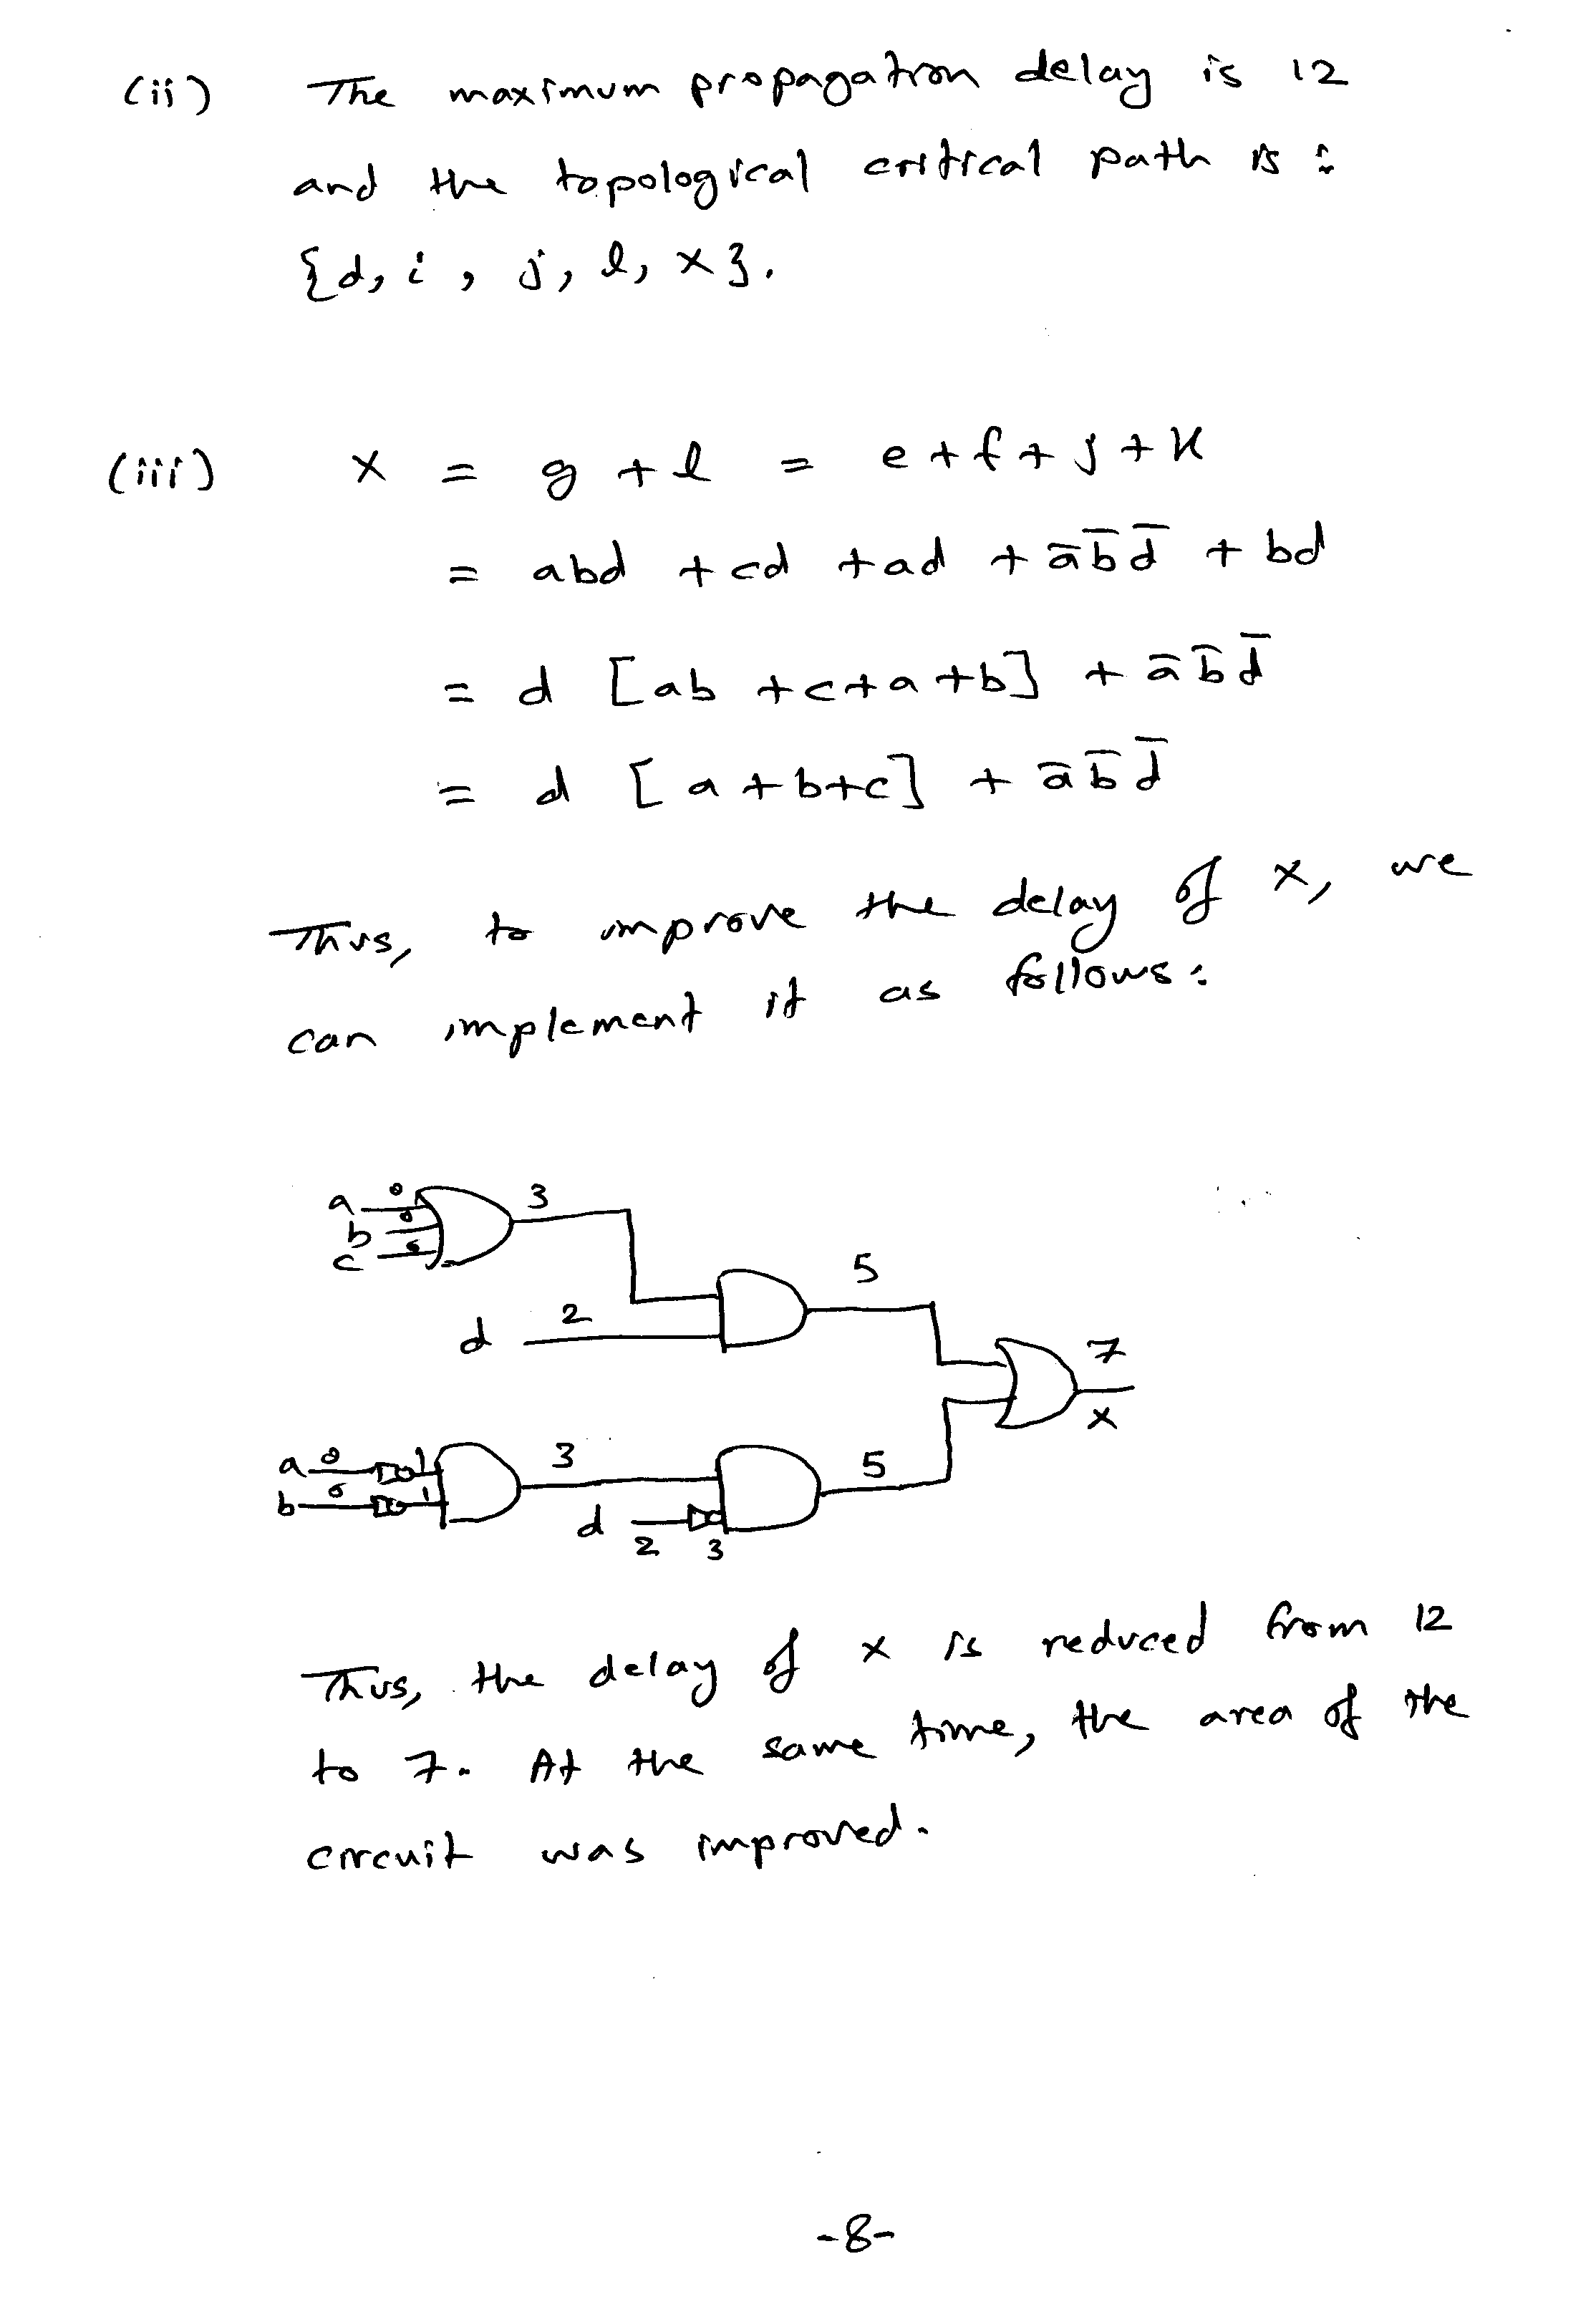 (ii) The maximum propagation delay is 12
and the topological critical path is :
{d, i, j, l, x}.
(iii) x = g + l = e + f + j + k
= abd + cd + ad + a̅b̅d̅ + bd
= d [ab + c + a + b] + a̅b̅d̅
= d [a + b + c] + a̅b̅d̅
Thus, to improve the delay of x, we
can implement it as follows :
a 0 3
b 0
c 0
5
d 2
7
x
a 0 1 3
b 0 1
5
d 2 3
Thus, the delay of x is reduced from 12
to 7. At the same time, the area of the
circuit was improved.
-8-